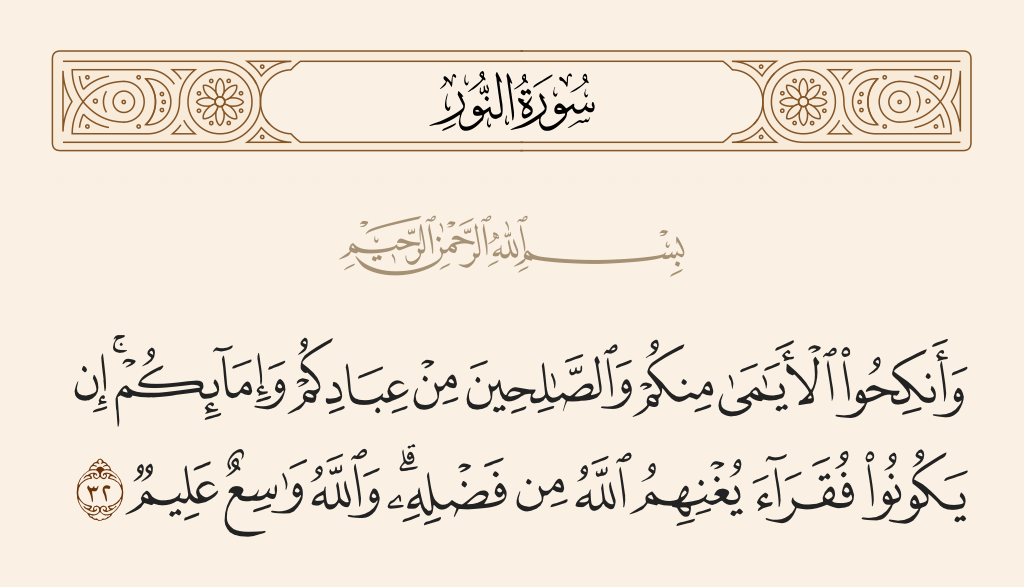 سُورَةُ النُّورِ
بِسْمِ ٱللَّهِ ٱلرَّحْمَٰنِ ٱلرَّحِيمِ
وَأَنكِحُوا۟ ٱلْأَيَـٰمَىٰ مِنكُمْ وَٱلصَّـٰلِحِينَ مِنْ عِبَادِكُمْ وَإِمَآئِكُمْ ۚ إِن
يَكُونُوا۟ فُقَرَآءَ يُغْنِهِمُ ٱللَّهُ مِن فَضْلِهِۦ ۗ وَٱللَّهُ وَٰسِعٌ عَلِيمٌ ٣٢